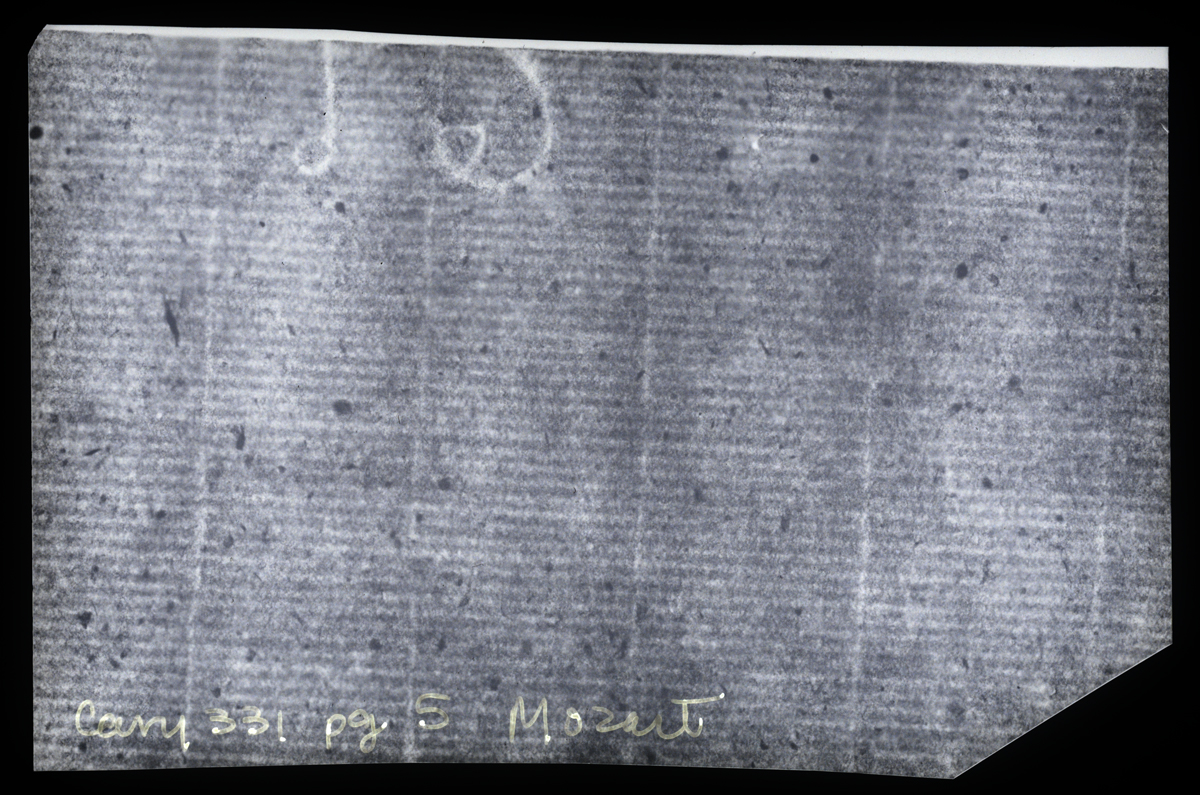 Cary 331 pg 5 Mozart